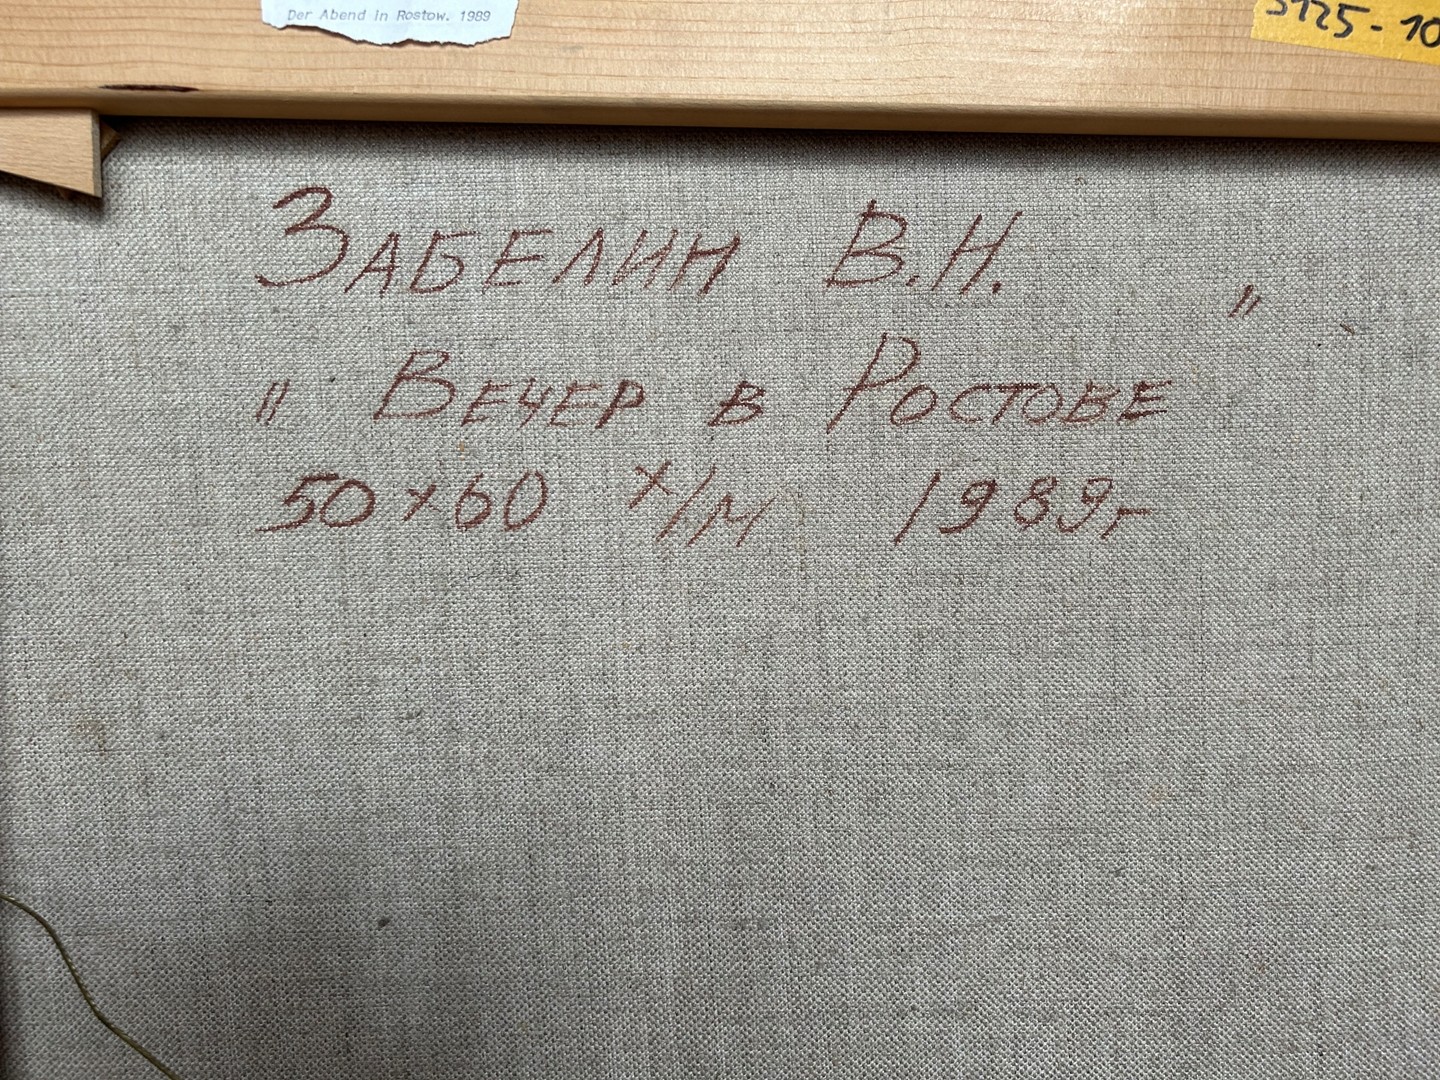 Der Abend in Rostow. 1989
5125-10
Забелин В.Н.
" Вечер в Ростове "
50x60 х/м 1989г